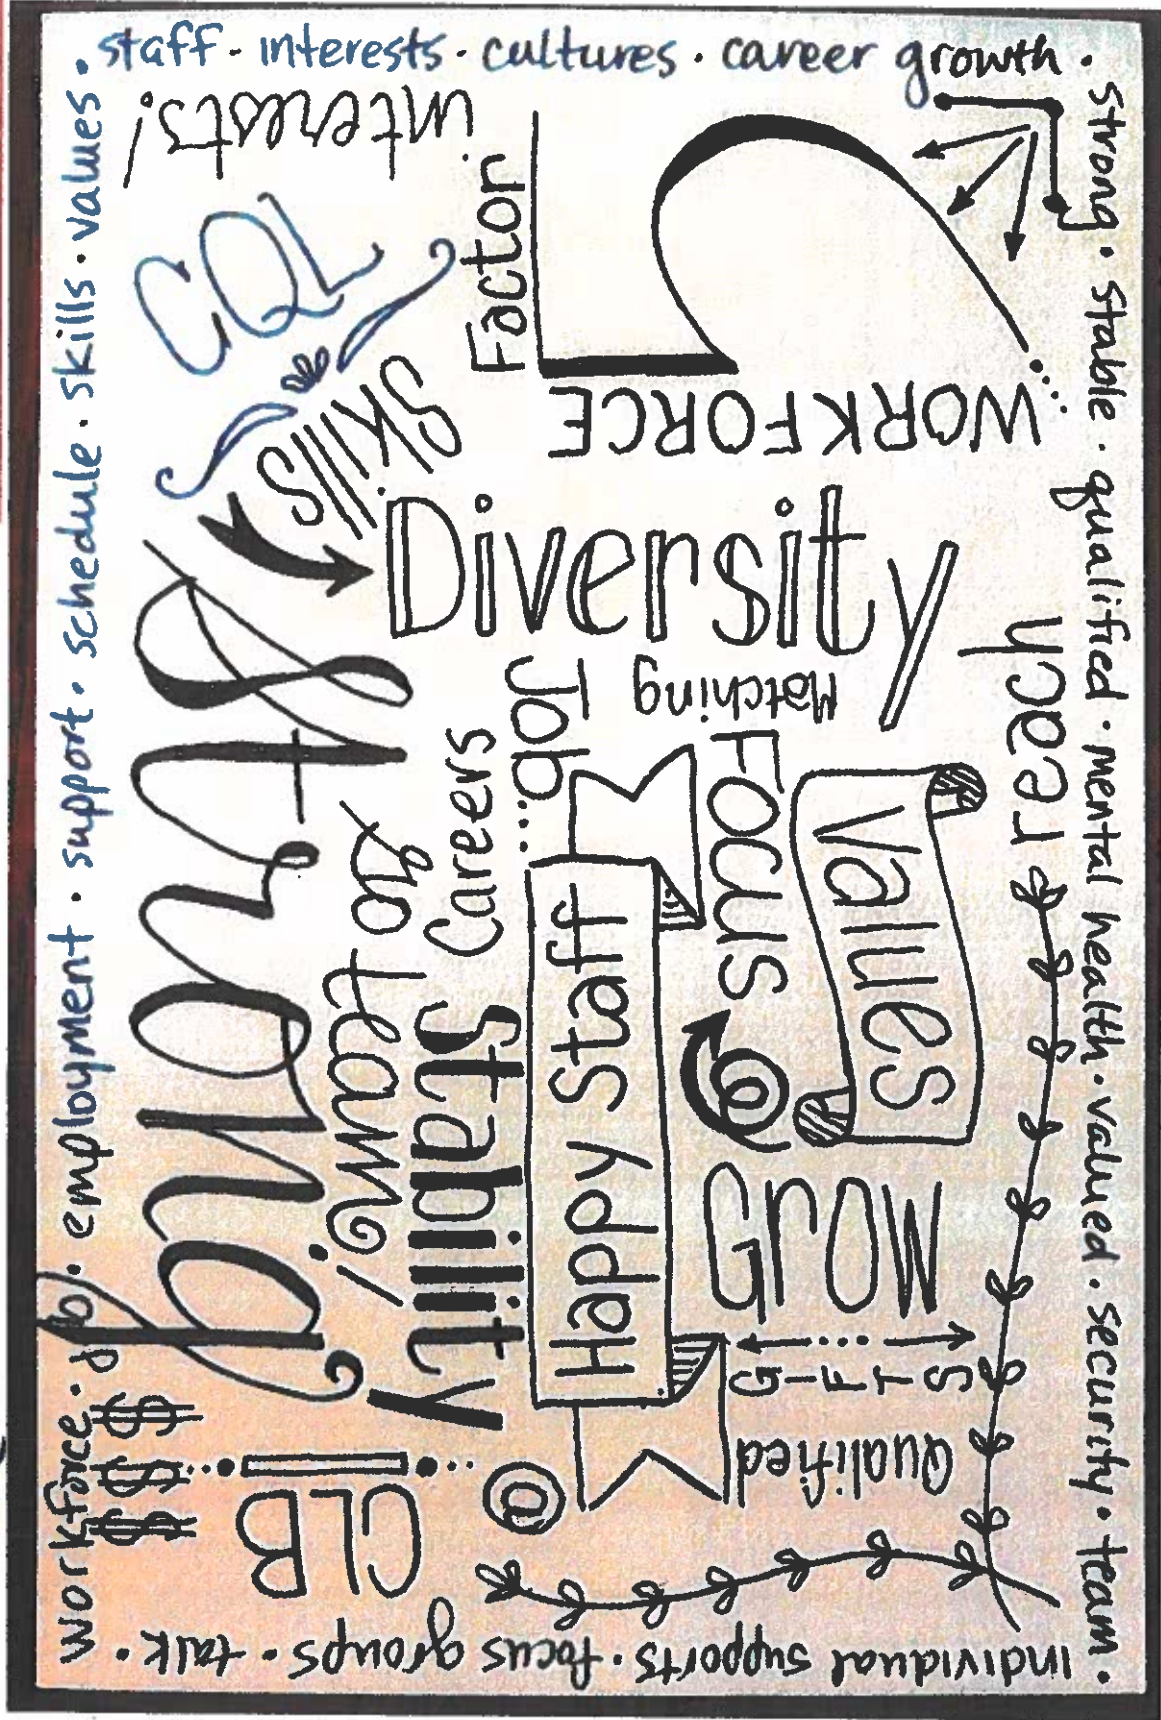 staff · interests · cultures · career growth ·
strong · stable · qualified · mental health · valued · security · team ·
individual supports · focus groups · talk ·
workforce · job · employment · support · schedule · skills · values ·
interests!
CQL
Factor
WORKFORCE
Skills
Diversity
Strong
Matching
Job...
Focus
Careers
Stability
Happy Staff
Values
reach
Grow
GIFTS
Qualified
@
CLB
$$$